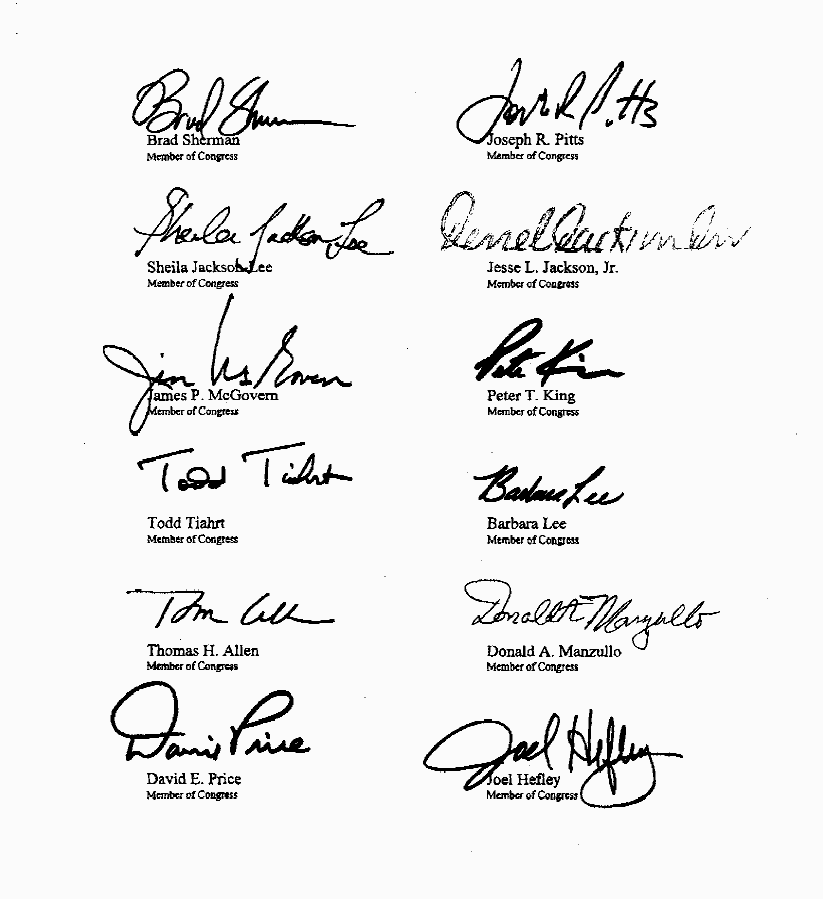 Brad Sherman
Brad Sherman
Member of Congress
Joseph R. Pitts
Joseph R. Pitts
Member of Congress
Sheila Jackson Lee
Sheila Jackson Lee
Member of Congress
Jesse L. Jackson, Jr.
Member of Congress
Jim McGovern
James P. McGovern
Member of Congress
Pete King
Peter T. King
Member of Congress
Todd Tiahrt
Todd Tiahrt
Member of Congress
Barbara Lee
Barbara Lee
Member of Congress
Tom Allen
Thomas H. Allen
Member of Congress
Donald A. Manzullo
Donald A. Manzullo
Member of Congress
David Price
David E. Price
Member of Congress
Joel Hefley
Joel Hefley
Member of Congress